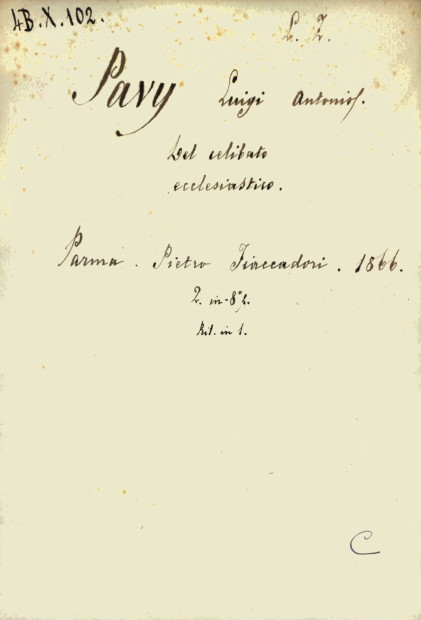 4B.X.102.
L. Z.
Pavy Luigi Antonio
Del celibato
ecclesiastico.
Parma. Pietro Fiaccadori. 1866.
2. in-8°
Ril. in 1.
C